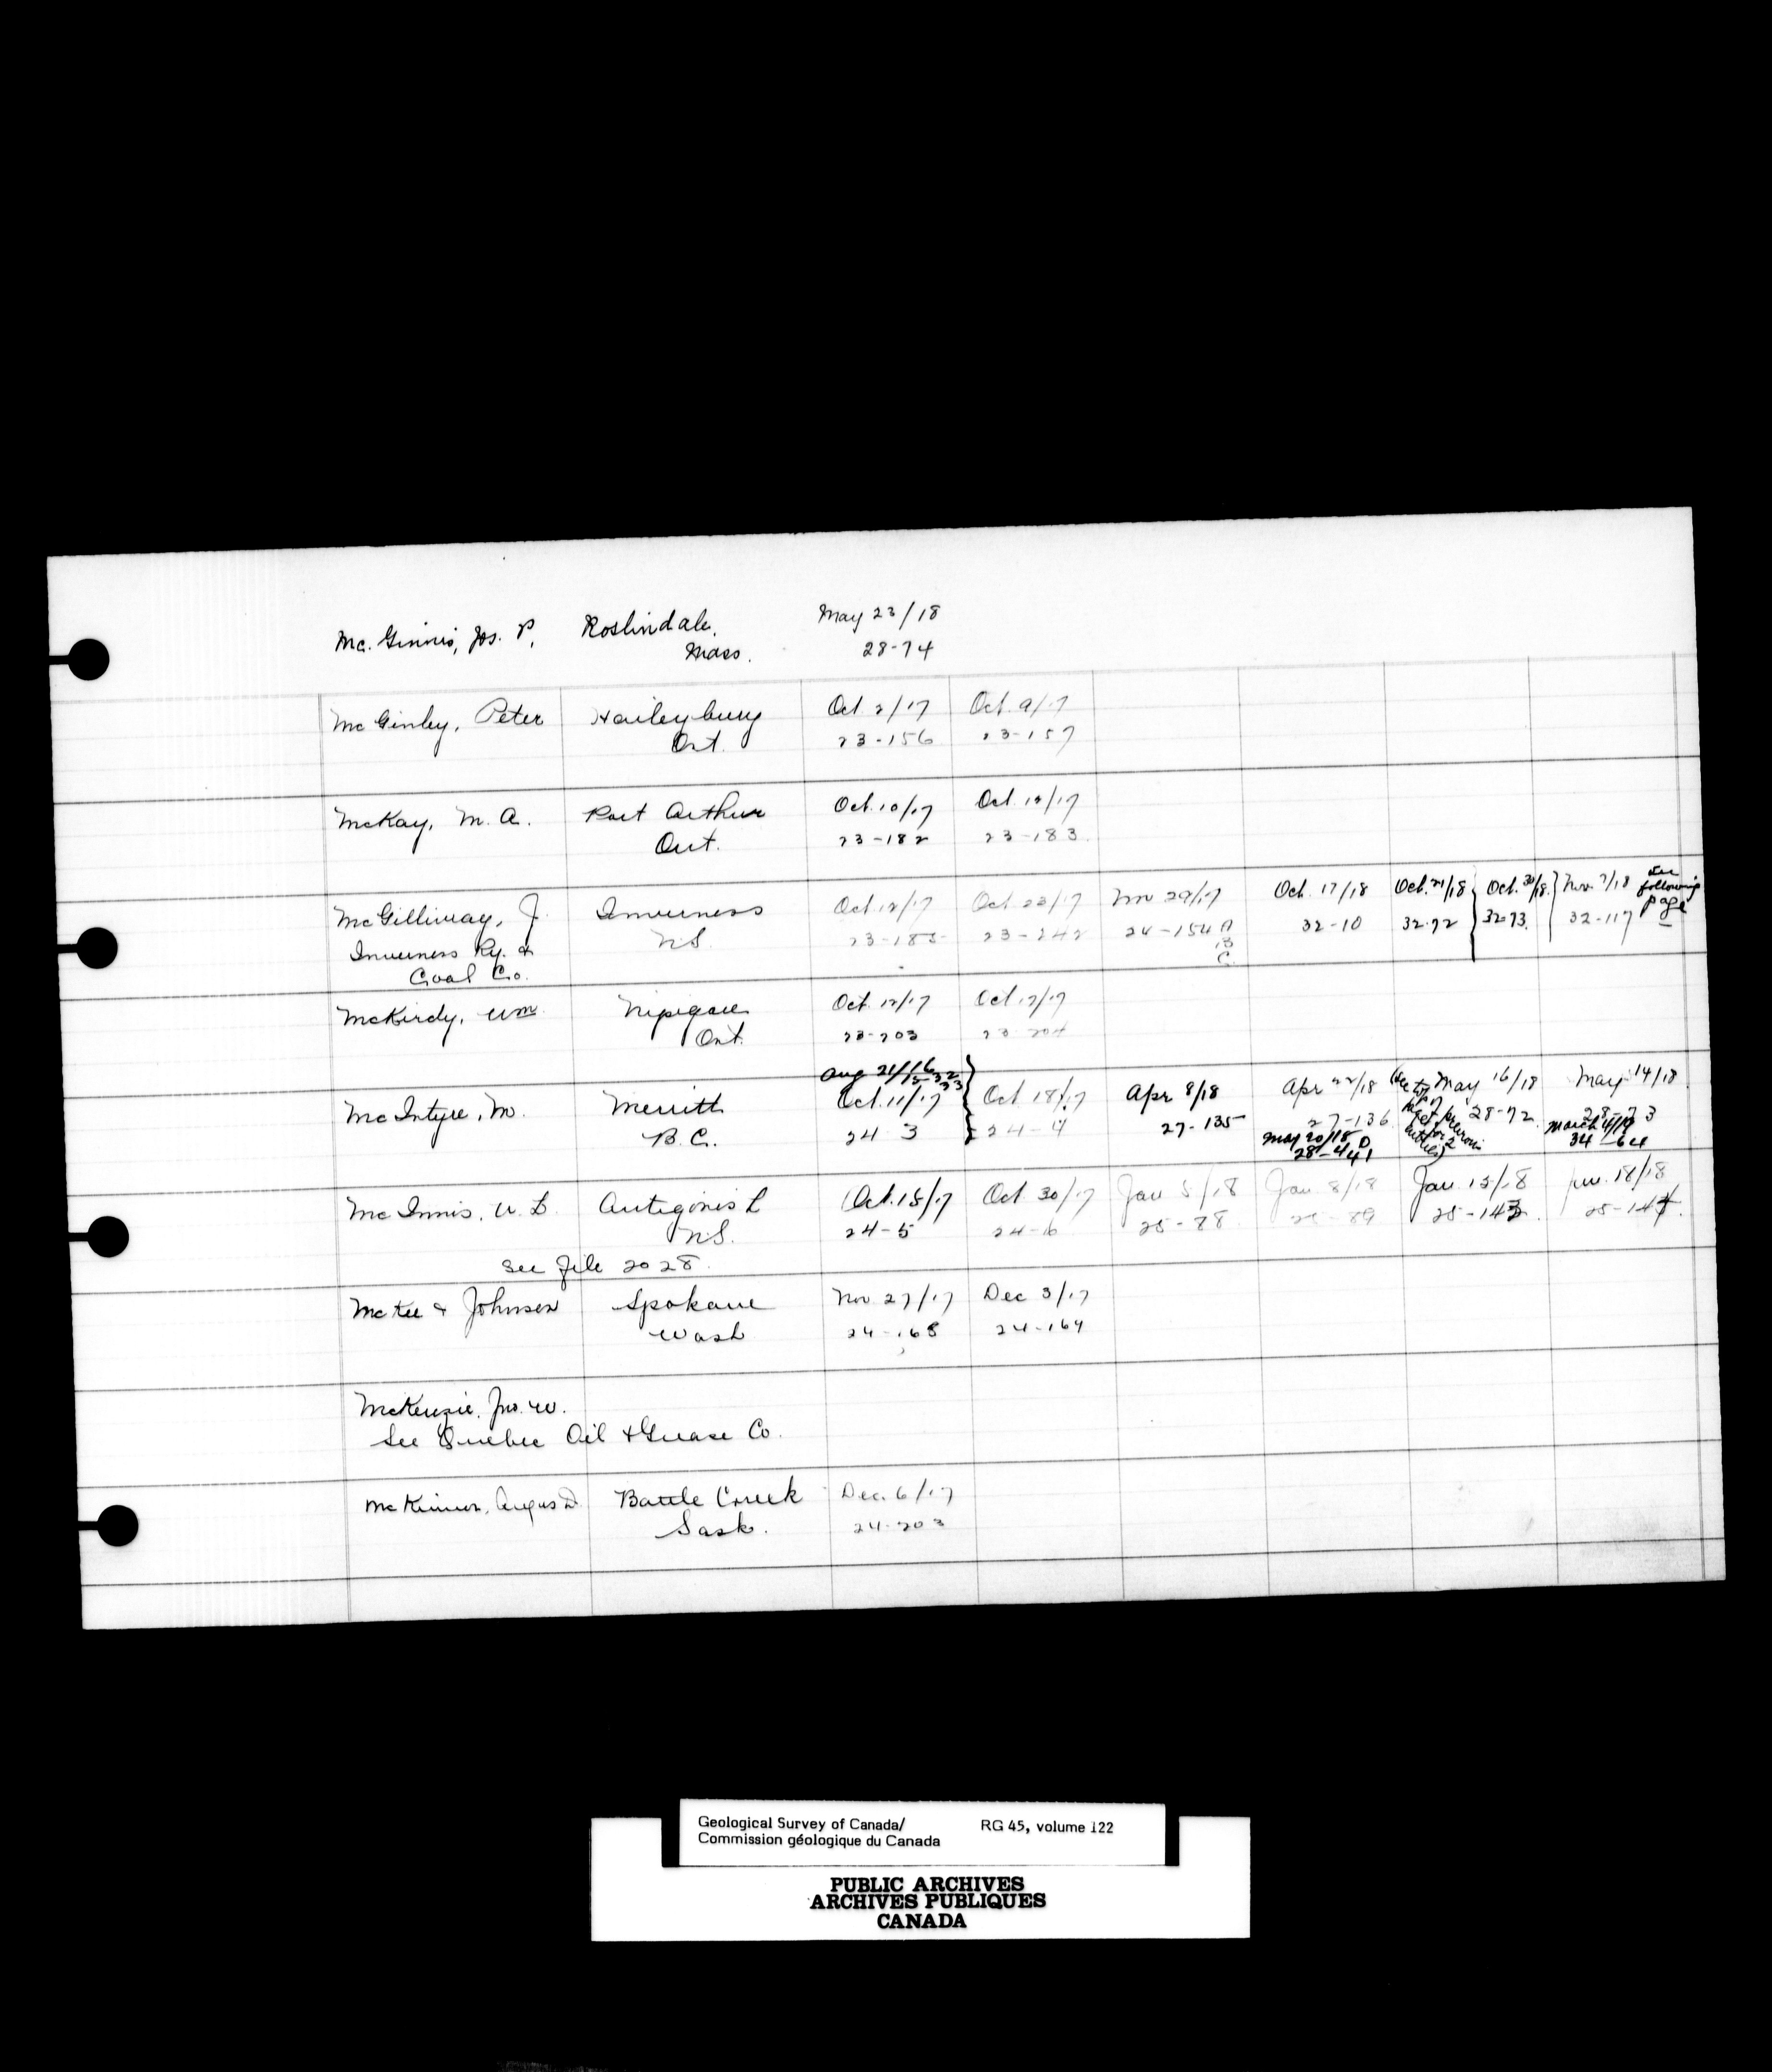 Mc. Ginnis, Jos. P. Roslindale, May 23/18
Mass. 28-74
McGinley, Peter Haileybury Oct 2/17 Oct. 9/17
Ont. 23-156 23-157
McKay, M. A. Port Arthur Oct. 10/17 Oct. 12/17
Ont. 23-182 23-183
McGillivray, J. Inverness Oct 12/17 Oct 22/17 Nov 29/17 Oct. 17/18 Oct. 21/18 Oct. 30/18. Nov. 7/18 See following page
Inverness Ry. & N.S. 23-185 23-242 24-154 A B C. 32-10 32-72 32-73. 32-117
Coal Co.
McKirdy, Wm Nipigon Oct. 12/17 Oct 17/17
Ont. 23-203 23-204
Aug 21/16
McIntyre, M. Merritt Oct. 11/17 Oct 18/17 Apr 8/18 Apr 22/18 May 16/18 May 14/18
B.C. 24-3 24-4 27-135 27-136 28-72 28-73
May 20/18 March 4/19
28-441 34-64
McInnis, W. D. Antigonish Oct. 15/17 Oct 30/17 Jan 5/18 Jan. 8/18 Jan. 15/18 Jan. 18/18
N.S. 24-5 24-6 25-88 25-89 25-143. 25-144.
See file 2028.
McKee & Johnson Spokane Nov 27/17 Dec 3/17
Wash 24-168 24-169
McKenzie, Jno. W.
See Quebec Oil & Grease Co.
McKinnon, Angus D. Battle Creek Dec. 6/17
Sask. 24-203
Geological Survey of Canada/ RG 45, volume 122
Commission géologique du Canada
PUBLIC ARCHIVES
ARCHIVES PUBLIQUES
CANADA